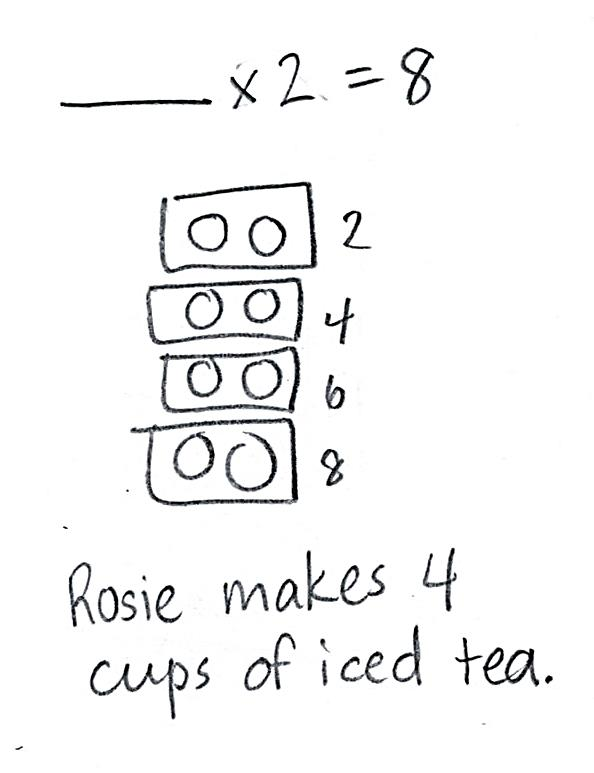 ____ x 2 = 8
2
4
6
8
Rosie makes 4
cups of iced tea.